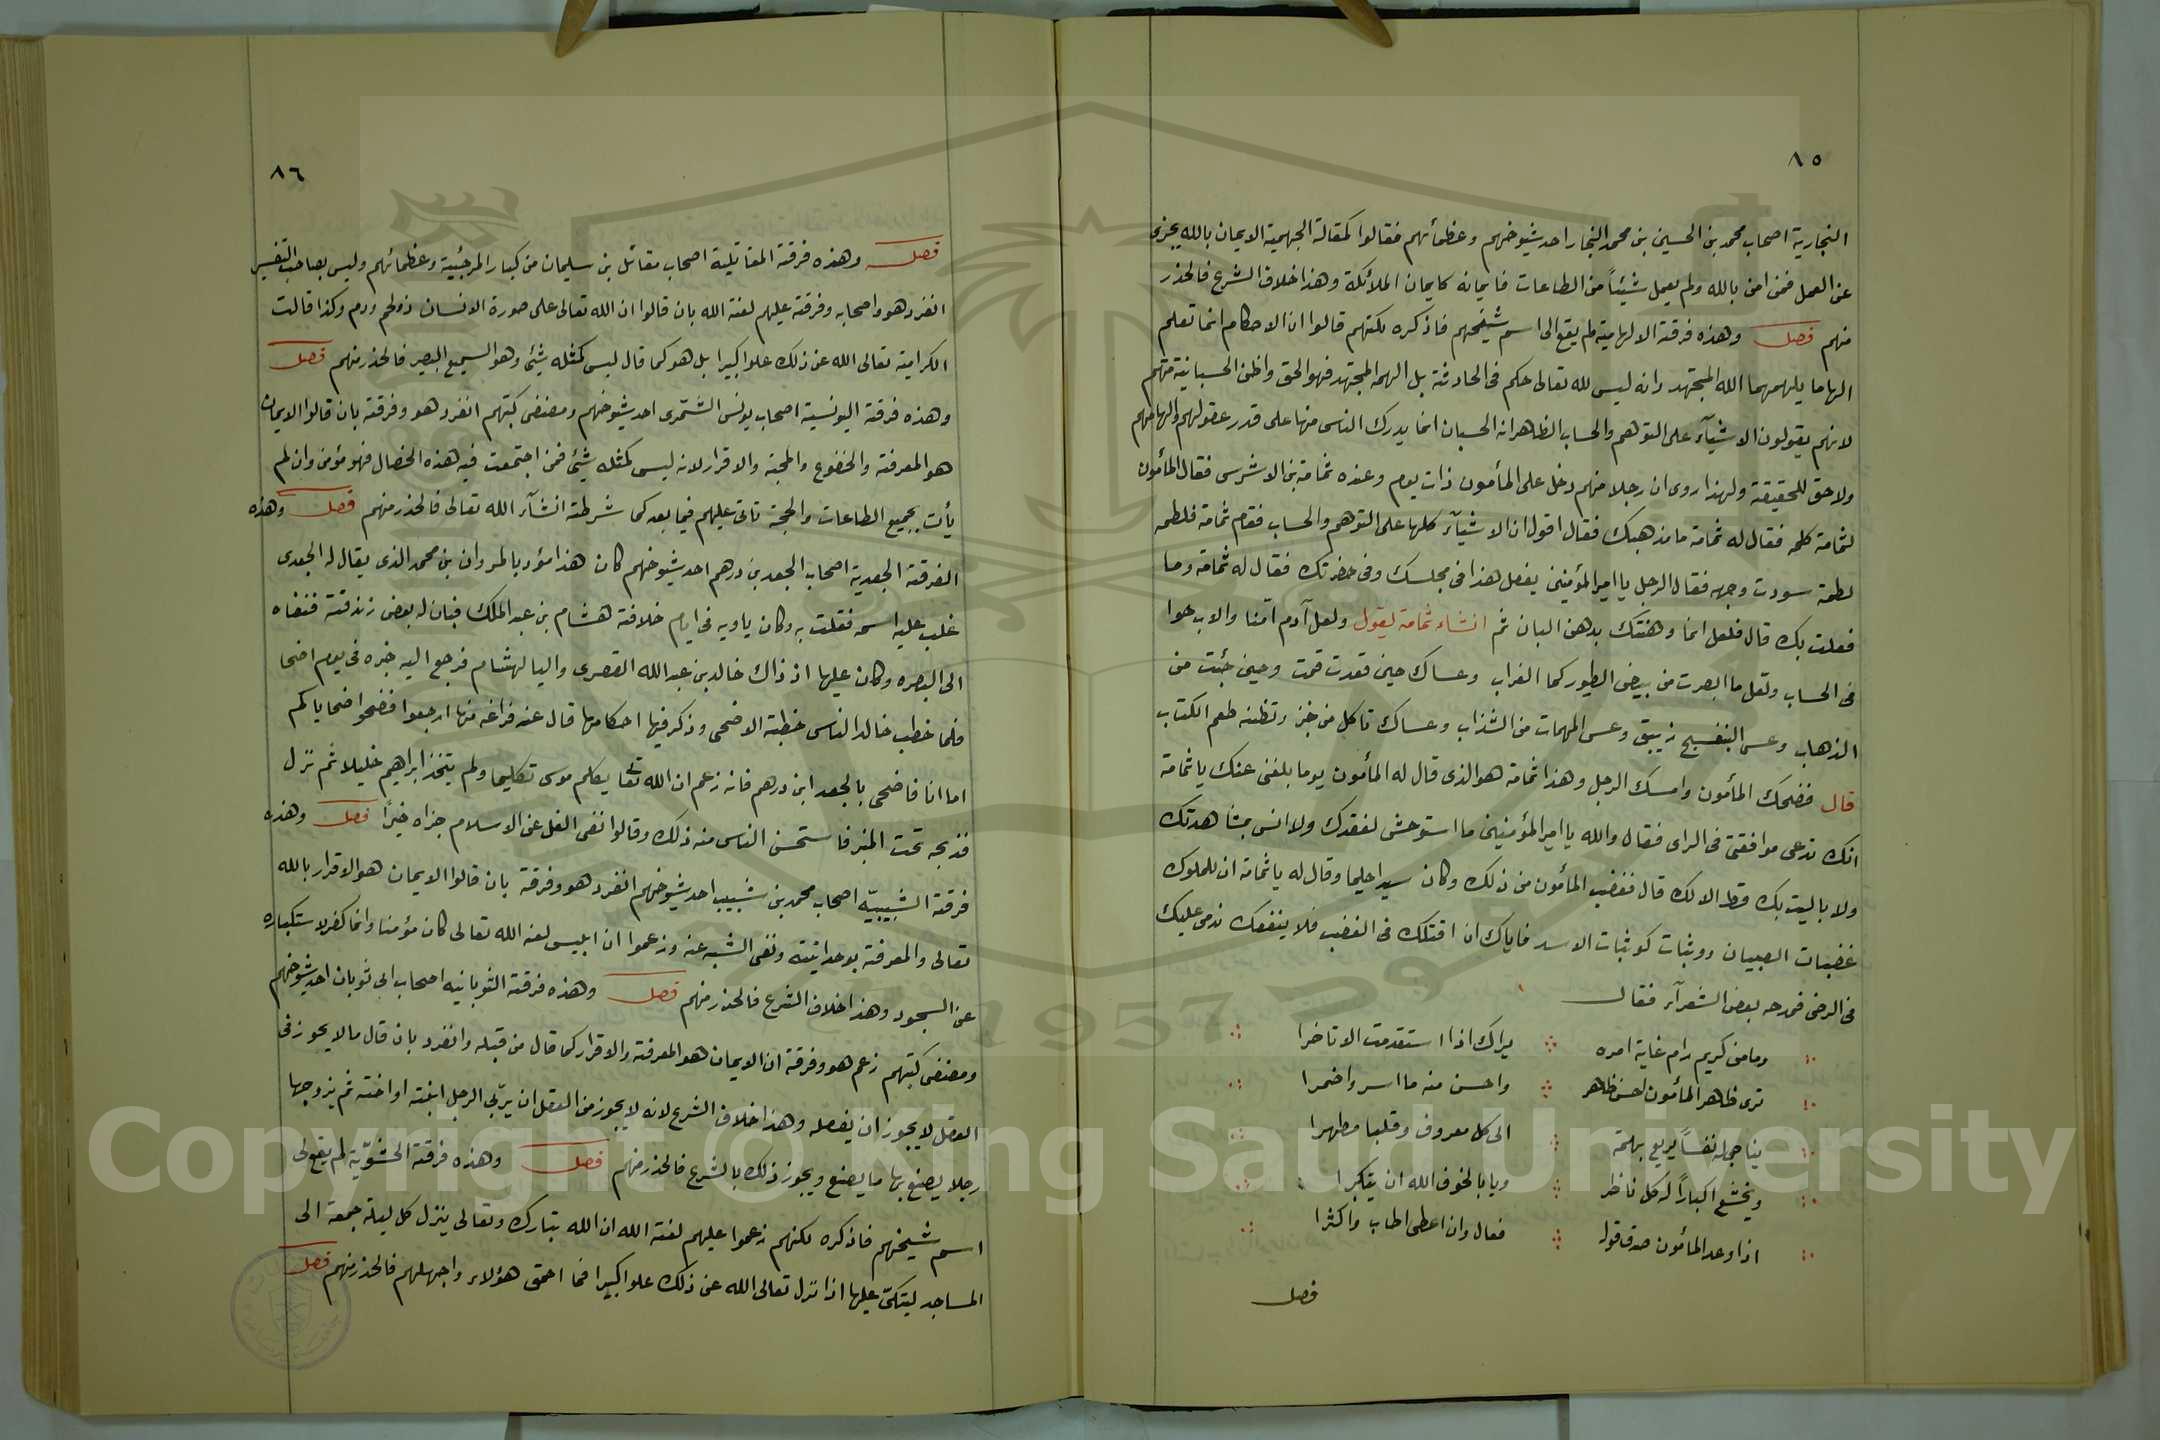 ٨٥
النجارية اصحاب محمد بن الحسين بن محمد النجار احد شيوخهم وعظمائهم فقالوا كمقالة الجهمية الايمان بالله يجزى
عن العمل فمن امن بالله ولم يعمل شيئاً من الطاعات فايمانه كايمان الملائكة وهذا خلاف الشرع فالحذر
منهم فصل وهذه فرقة الالهامية لم يقع الى اسم شيخهم فاذكره لكنهم قالوا ان الاحكام انما تعلم
الهاما يلهمهما الله المجتهد وانه ليس لله تعالى حكم فى الحادثة بل الهمه المجتهد فهو الحق واظن الحسبانية منهم
لانهم يقولون الاشيآء على التوهم والحساب الظاهر انه الحسبان انما يدرك الناس منها على قدر عقولهم والهامهم
ولا حق للحقيقة ولهذا روى ان رجلا منهم دخل على المأمون ذات يوم وعنده ثمامة بن الاشرس فقال المأمون
لثمامة كلمه فقال له ثمامة ما مذهبك فقال اقول ان الاشيآء كلها على التوهم والحساب فقام ثمامة فلطمه
لطمة سودت وجهه فقال الرجل يا امير المؤمنين يفعل هذا فى مجلسك وفى حضرتك فقال له ثمامة وما
فعلت بك قال فلعل انما وهنتك بدهن البان ثم انشاء ثمامة يقول ولعل آدم امّنا والاب حوا
فى الحساب ولعل ما ابصرت من بيض الطيور كما الغراب وعساك حين قعدت قمت وحين جئت من
الذهاب وعسى البنفسج زيبق وعسى المهمات من الشذاب وعساك تاكل من خز وتظنه طعم الكتاب
قال فضحك المأمون وامسك الرجل وهذا ثمامة هو الذى قال له المأمون يوما بلغنى عنك يا ثمامة
انك تدعى موافقتى فى الراى فقال والله يا امير المؤمنين ما استوحش لفقدك ولا انس بمشاهدتك
ولا باليت بك قط الا لك قال فغضب المأمون من ذلك وكان سيدا حليما وقال له يا ثمامة ان للملوك
غضبات الصبيان ووثبات كوثبات الاسد فاياك ان اقتلك فى الغضب فلا ينفعك ندمى عليك
فى الرضى فمدحه بعض الشعرآء فقال
ومامن كريم رام غاية امره يراك اذا استقدمت الا تاخرا
ترى ظاهر المأمون احسن ظاهر واحسن منه ما اسر واضمرا
يناجى له نفساً يريع بهمة الى كل معروف وقلبا مطهرا
ويخشع اكباراً له كل ناظر ويابا لخوف الله ان يتكبرا
اذا وعد المأمون صدق قوله فعال وان اعطى اطاب واكثرا
فصل
٨٦
فصل وهذه فرقة المقاتلية اصحاب مقاتل بن سليمان من كبار المرجئية وعظمائهم وليس بصاحب التفسير
انفرد هو واصحابه وفرقة عليهم لعنة الله بان قالوا ان الله تعالى على صورة الانسان ذو لحم ودم وكذا قالت
الكرامية تعالى الله عن ذلك علوا كبيرا بل هو كما قال ليس كمثله شئ وهو السميع البصير فالحذر منهم فصل
وهذه فرقة اليونسية اصحاب يونس الشمرى احد شيوخهم ومصنفى كتبهم انفرد هو وفرقة بان قالوا الايمان
هو المعرفة والخضوع والمحبة والاقرار لانه ليس كمثله شئ فمن اجتمعت فيه هذه الخصال فهو مؤمن وان لم
يأت بجميع الطاعات والحجة تاتى عليهم فيما بعد كما شرطته انشآء الله تعالى فالحذر منهم فصل وهذه
الفرقة الجعدية اصحاب الجعد بن درهم احد شيوخهم كان هذا مؤدبا لمروان بن محمد الذى يقال له الجعدى
غلب عليه اسمه فقلت به وكان ياويه فى ايام خلافة هشام بن عبد الملك فبان له بعض زندقته فنفاه
الى البصره وكان عليها اذ ذاك خالد بن عبد الله القصرى واليا لهشام فرجع اليه خبره فى يوم اضحا
فلما خطب خالد الناس خطبة الاضحى وذكر فيها احكامها قال عند فراغه منها ارجعوا فضحوا ضحاياكم
اما انا فاضحى بالجعد ابن درهم فانه زعم ان الله تعا يكلم موسى تكليما ولم يتخذ ابراهيم خليلا ثم نزل
فذبحه تحت المنبر فاستحسن الناس منه ذلك وقالوا نفى الغل عن الاسلام جزاه خيرًا فصل وهذه
فرقة الشبيبيّة اصحاب محمد بن شبيب احد شيوخهم انفرد هو وفرقة بان قالوا الايمان هو الاقرار بالله
تعالى والمعرفة بوحدانيته ونفى الشبه عنه وزعموا ان ابليس لعنه الله تعالى كان مؤمنا وانما كفر لاستكباره
عن السجود وهذا خلاف الشرع فالحذر منهم فصل وهذه فرقة الثوبانيه اصحاب ابى ثوبان احد شيوخهم
ومصنفى كتبهم زعم هو وفرقة ان الايمان هو المعرفة والاقرار كما قال من قبله وانفرد بان قال ما لا يجوز فى
العقل لا يجوز ان يفعله وهذا خلاف الشرع لانه لا يجوز من العقل ان يربّى الرجل ابنته او اخته ثم يزوجها
رجلا يصنع بها ما يصنع ويجوز ذلك بالشرع فالحذر منهم فصل وهذه فرقة الحشويّة لم يقع لى
اسم شيخهم فاذكره لكنهم زعموا عليهم لعنة الله ان الله تبارك وتعالى ينزل كل ليلة جمعة الى
المساجد ليتكئ عليها اذا نزل تعالى الله عن ذلك علوا كبيرا فما احمق هؤلاء واجهلهم فالحذر منهم فصل
Copyright © King Saud University
1957